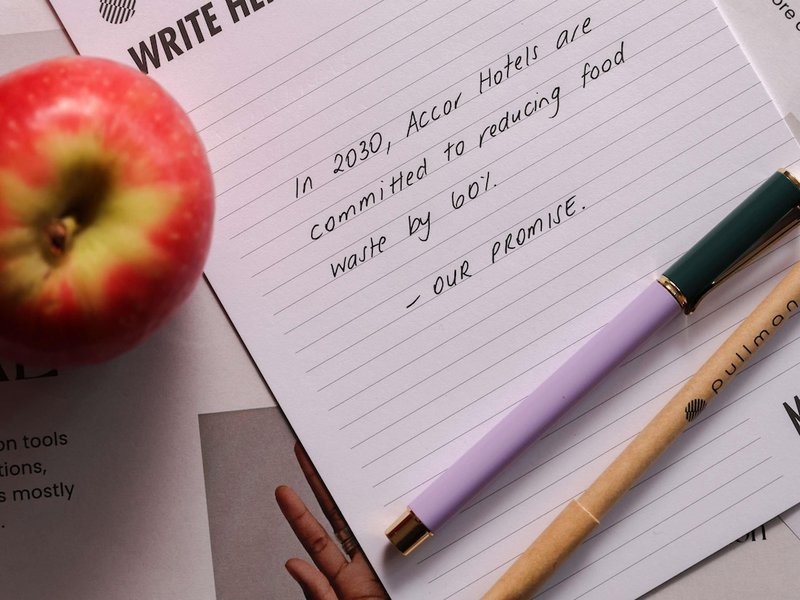 WRITE
In 2030, Accor Hotels are
committed to reducing food
waste by 60%.
- OUR PROMISE.
pullman
on tools
tions,
s mostly
.